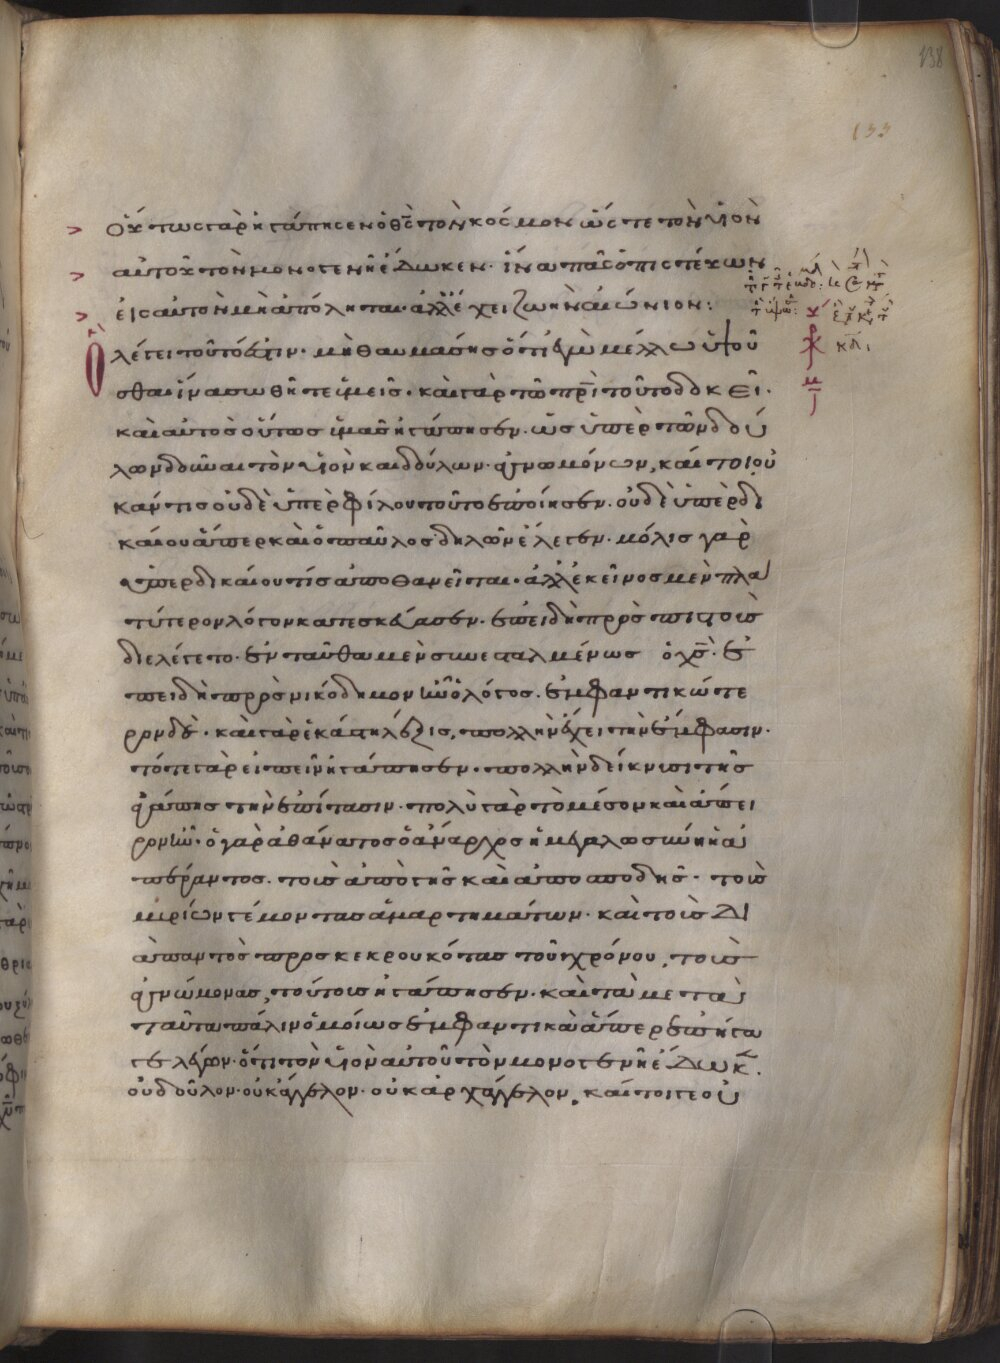 138
133
Οὕτως γὰρ ἠγάπησεν ὁ θς τὸν κόσμον ὥστε τὸν υἱὸν
αὐτοῦ τὸν μονογενῆ ἔδωκεν· ἵνα πᾶς ὁ πιστεύων
εἰς αὐτὸν μὴ ἀπόληται· ἀλλ' ἔχει ζωὴν αἰώνιον:
Ὃ λέγει τοῦτό ἐστιν· μὴ θαυμάσῃς ὅτι ἐγὼ μέλλω ὑψοῦ
σθαι ἵνα σωθῆτε ὑμεῖς· καὶ γὰρ τῶ πρι τοῦτο δοκεῖ·
καὶ αὐτὸς οὕτως ὑμᾶς ἠγάπησεν· ὡς ὑπὲρ τῶν δού
λων δοῦναι τὸν υἱὸν καὶ δούλων ἀγνωμόνων, καίτοι οὐ
κἄν τις οὐδὲ ὑπὲρ φίλου τοῦτο ἐποίησεν· οὐδὲ ὑπὲρ δι
καίου ἅπερ καὶ ὁ παῦλος δηλῶν ἔλεγεν· μόλις γὰρ
ὑπὲρ δικαίου τίς ἀποθανεῖται· ἀλλ' ἐκεῖνος μὲν πλα
τύτερον λόγον κατεσκεύασεν· ἐπειδὴ πρὸς πιστοὺς
διελέγετο· ἐνταῦθα μὲν συνεσταλμένως ὁ χς· ἐ
πειδὴ πρὸς νικόδημον ἦν ὁ λόγος· ἐμφαντικώτε
ρον δὲ· καὶ γὰρ ἑκάστη λέξις, πολλὴν ἔχει τὴν ἔμφασιν·
τότε γὰρ εἰπεῖν ἠγάπησεν· πολλὴν δείκνυσι τῆς
ἀγάπης τὴν ἐπίτασιν· πολὺ γὰρ τὸ μέσον καὶ ἄπει
ρον ἦν· ὁ γὰρ ἀθάνατος ὁ ἄναρχος ἡ μεγαλωσύνη ἡ ἀ
πέραντος· τοὺς ἀπὸ γῆς καὶ ἀπὸ σποδῆς· τοὺς
μυρίων γέμοντας ἁμαρτημάτων· καὶ τοὺς δι
ἀπαντὸς προσκεκρουκότας τοῦ χρόνου, τοὺς
ἀγνώμονας, τούτους ἠγάπησεν· καὶ τὰ μετὰ
ταῦτα πάλιν ὁμοίως ἐμφαντικὰ ἅπερ ἐπήγα
γε λέγων· ὅτι τὸν υἱὸν αὐτοῦ τὸν μονογενῆ ἔδωκ·
οὐ δοῦλον· οὐκ ἄγγελον· οὐκ ἀρχάγγελον, καίτοι γε οὐ